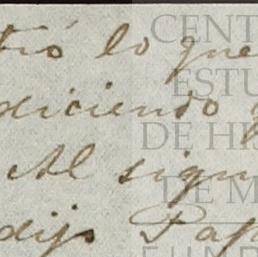 tió lo que
diciendo
Al sigui
dijo Pap
CENT
ESTU
DE HIS
DE M
FUND